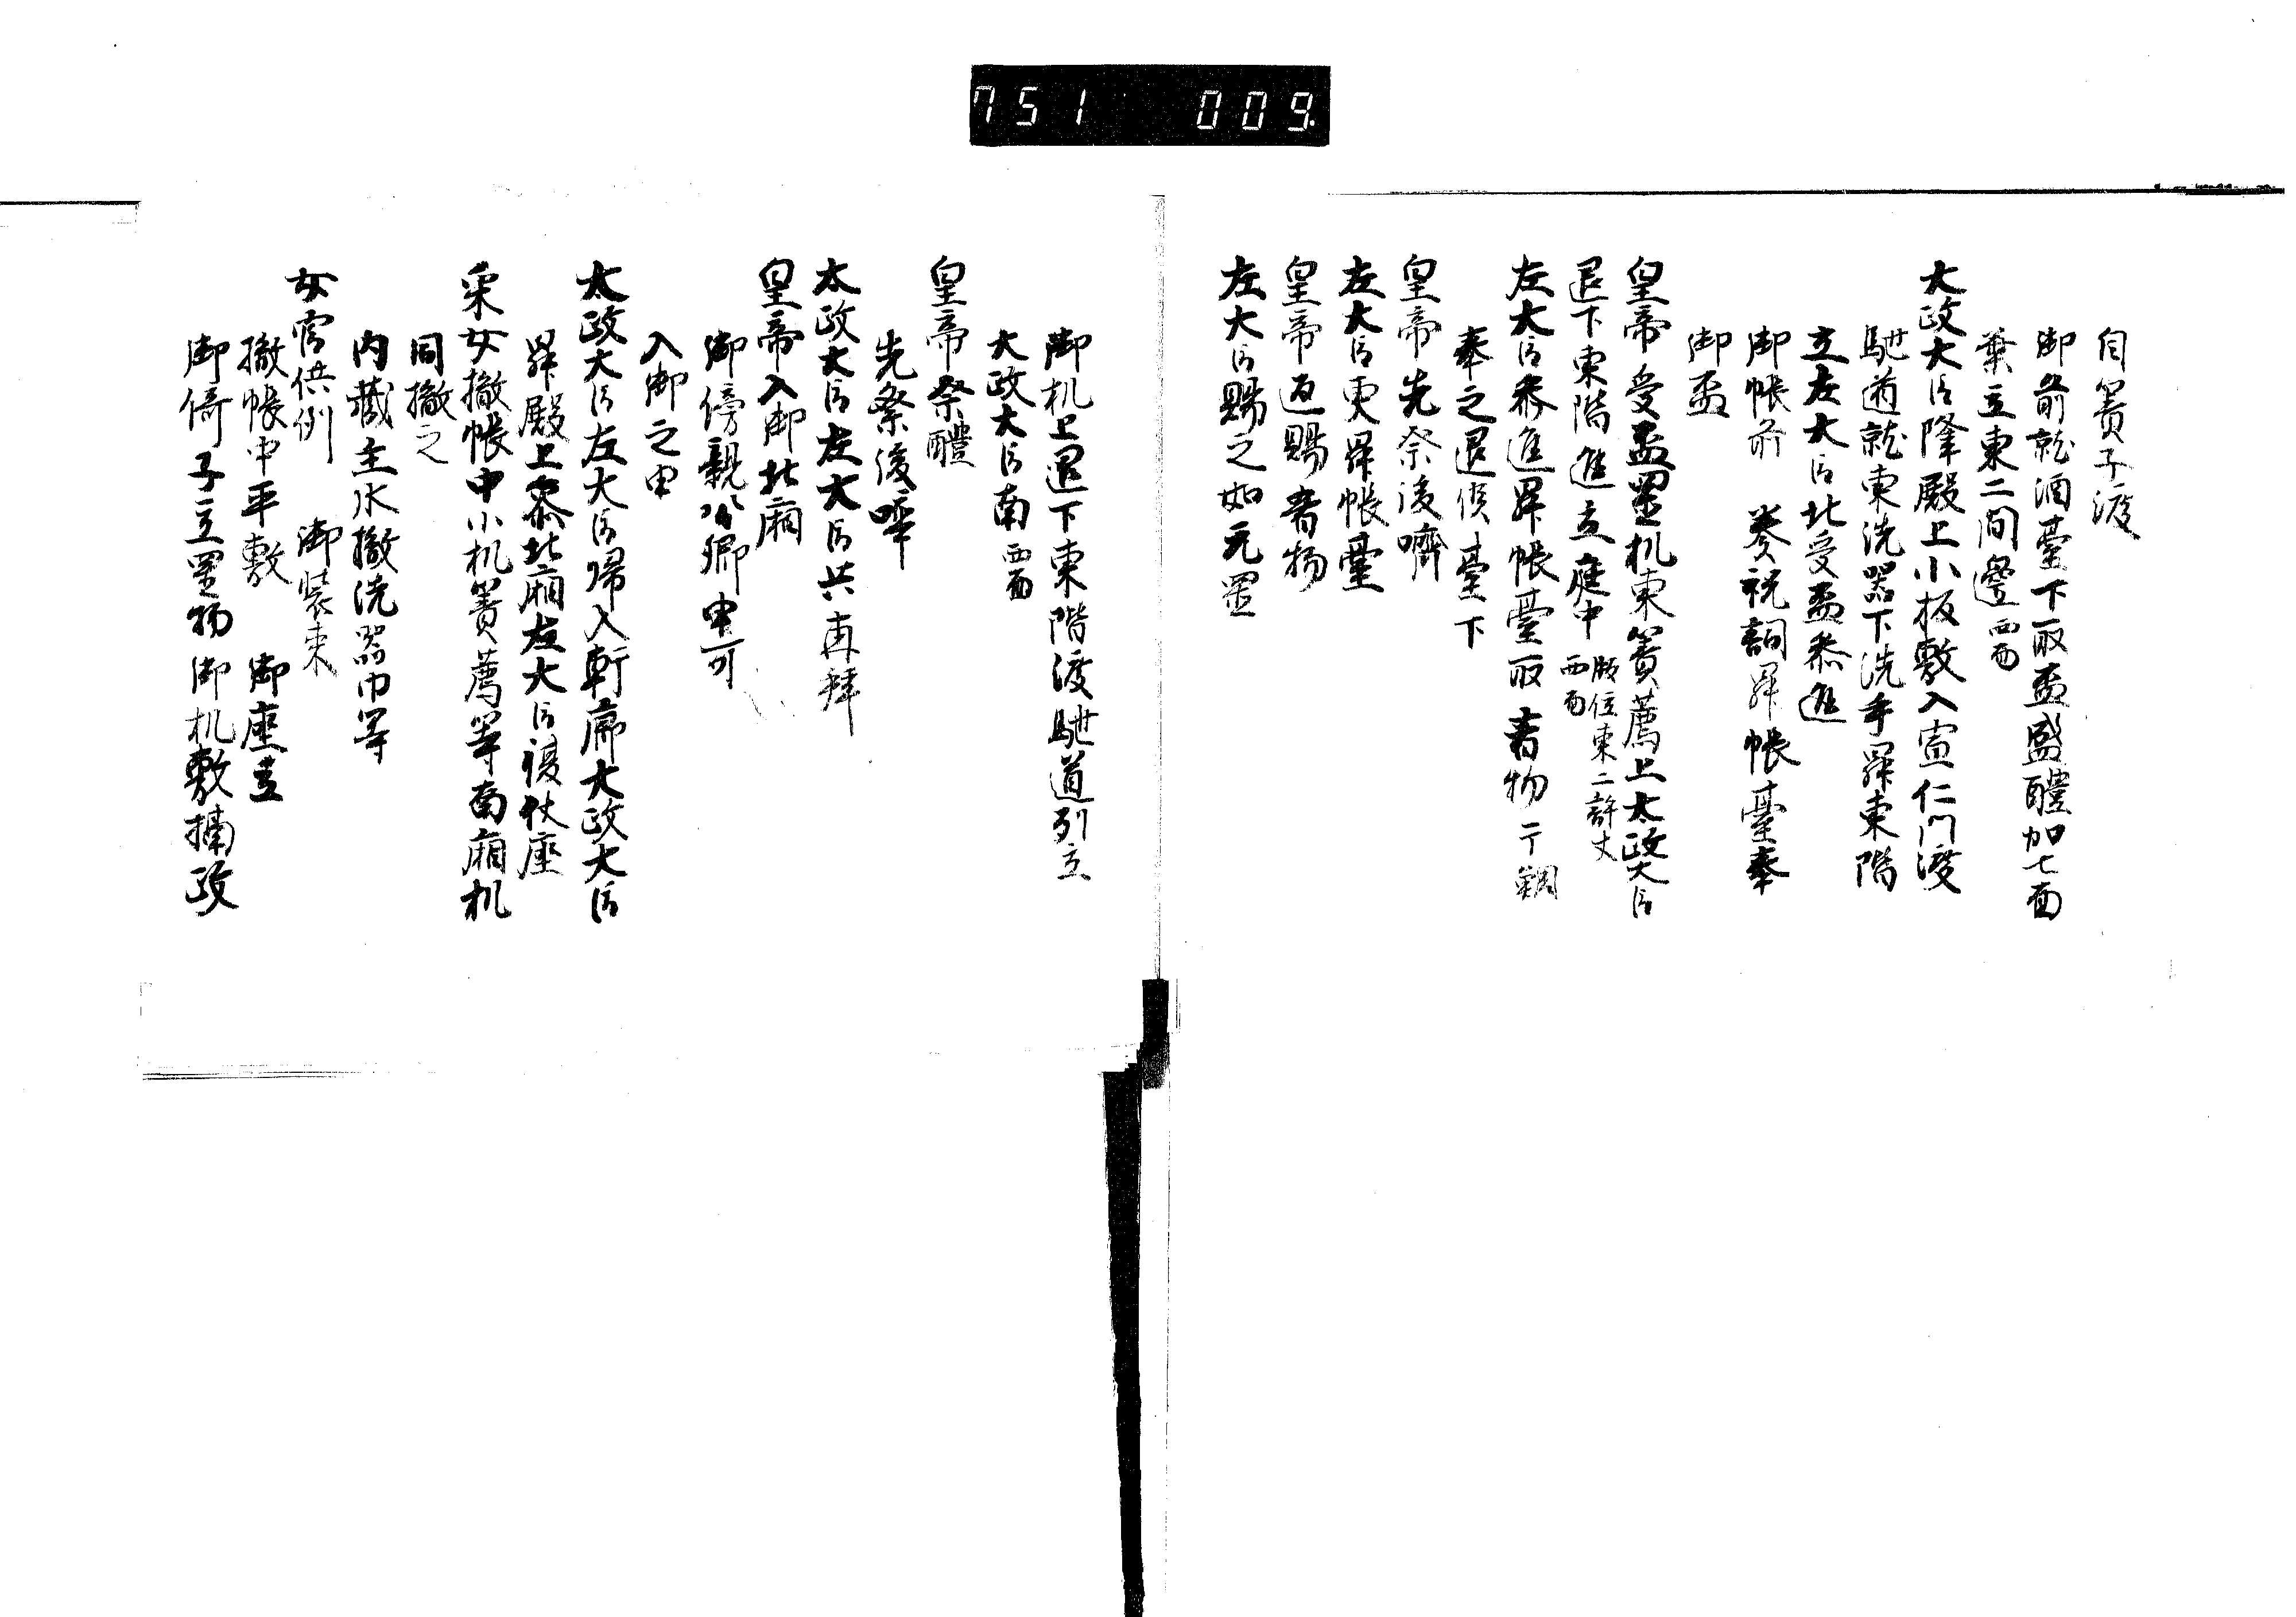 751 009
自簀子渡
御前就酒臺下取盃盛醴加七面
葉立東二間邊西面
太政大臣降殿上小板敷入宣仁門渡
馳道就東洗器下洗手昇東階
立左大臣北受盃参進
御帳前 奏祝詞昇帳臺奉
御盃
皇帝受盃置机東簀薦上太政大臣
退下東階進立庭中版位東二許丈西面
左大臣参進昇帳臺取肴物一干鯛
奉之退候臺下
皇帝先祭後嚌
左大臣更昇帳臺
皇帝返賜肴物
左大臣賜之如元置
御机上退下東階渡馳道列立
太政大臣南西面
皇帝祭醴
先祭後啐
太政大臣左大臣共再拜
皇帝入御北廂
御傍親公卿申可
入御之由
太政大臣左大臣帰入軒廊太政大臣
昇殿上参北廂左大臣復仗座
采女撤帳中小机簀薦等南廂机
同撤之
内藏主水撤洗器巾等
女官供例 御装束
撤帳中平敷 御座立
御倚子立置物御机敷摘政